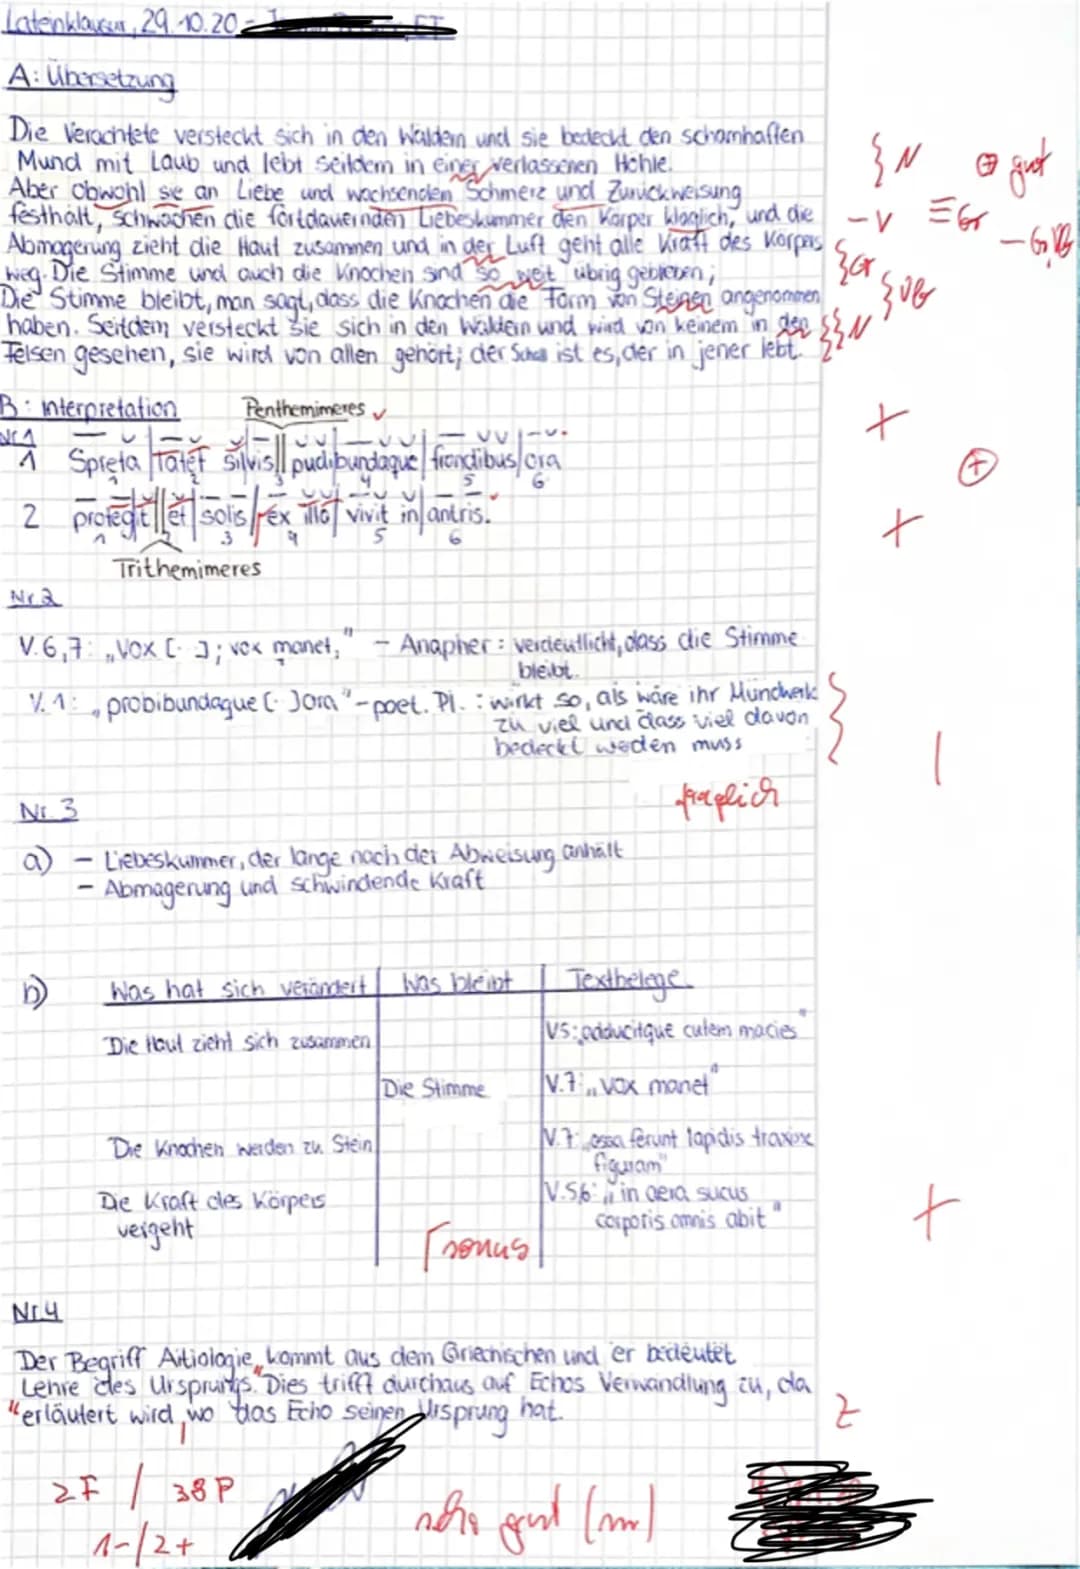 Lateinklausur, 29.10.20 -
A: Übersetzung
Die Verachtete versteckt sich in den Wäldern und sie bedeckt den schamhaften
Mund mit Laub und lebt seitdem in einer verlassenen Höhle.
} N
⊕ gut
Aber obwohl sie an Liebe und wachsenden Schmerz und Zurückweisung
festhält, schwächen die fortdauernden Liebeskummer den Körper kläglich, und die
- V
≡ Gr
Abmagerung zieht die Haut zusammen und in der Luft geht alle Kraft des Körpers
weg. Die Stimme und auch die Knochen sind so weit übrig geblieben;
} Gr
Die Stimme bleibt, man sagt, dass die Knochen die Form von Steinen angenommen
haben. Seitdem versteckt sie sich in den Wäldern und wird von keinem in den
}} N
Felsen gesehen, sie wird von allen gehört; der Schall ist es, der in jener lebt.
B: Interpretation
Penthemimeres ✓
Nr. 1
1 Spreta latet silvis || pudibundaque frondibus ora
1 2 3 4 5 6
+
⊕
2 protegit || et solis ex illo vivit in antris.
1 2 3 4 5 6
+
Trithemimeres
Nr. 2
V. 6,7: „vox [..]; vox manet," - Anapher: verdeutlicht, dass die Stimme
bleibt.
V. 1: „probibundaque [..] ora" - poet. Pl.: wirkt so, als wäre ihr Mundwerk
zu viel und dass viel davon
bedeckt weden muss
fraglich
Nr. 3
a) - Liebeskummer, der lange nach der Abweisung anhält
- Abmagerung und schwindende Kraft
b) Was hat sich verändert | Was bleibt | Textbelege
Die Haut zieht sich zusammen
V5: „adducitque cutem macies"
Die Stimme
V.7: „vox manet"
Die Knochen werden zu Stein
V.7: „ossa ferunt lapidis traxisse
figuram"
Die Kraft des Körpers
vergeht
V.5,6: „in aera sucus
corporis omnis abit"
+
sonus
Nr. 4
Der Begriff Aitiologie kommt aus dem Griechischen und er bedeutet
„Lehre des Ursprungs." Dies trifft durchaus auf Echos Verwandlung zu, da
erläutert wird, wo das Echo seinen Ursprung hat.
Z
2F / 38P
1-/2+
sehr gut (m)